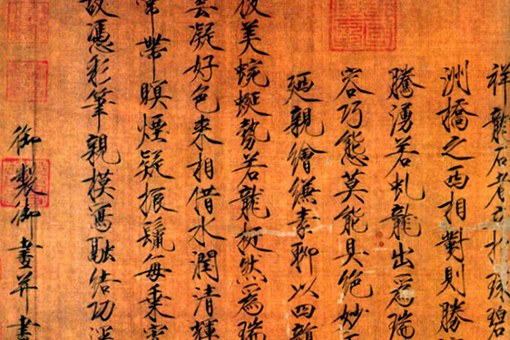 祥龍石者立於環碧
洲橋之西相對則勝
騰湧若虬龍出為瑞
容巧態莫能具絕妙
廼親繪縑素聊以四韻
彼美蜿蜒勢若龍挺然為瑞
雲凝好色來相借水潤清輝
常帶瞑煙疑振鬣每乘宵
故憑彩筆親模寫融結功深
御製御畫并書